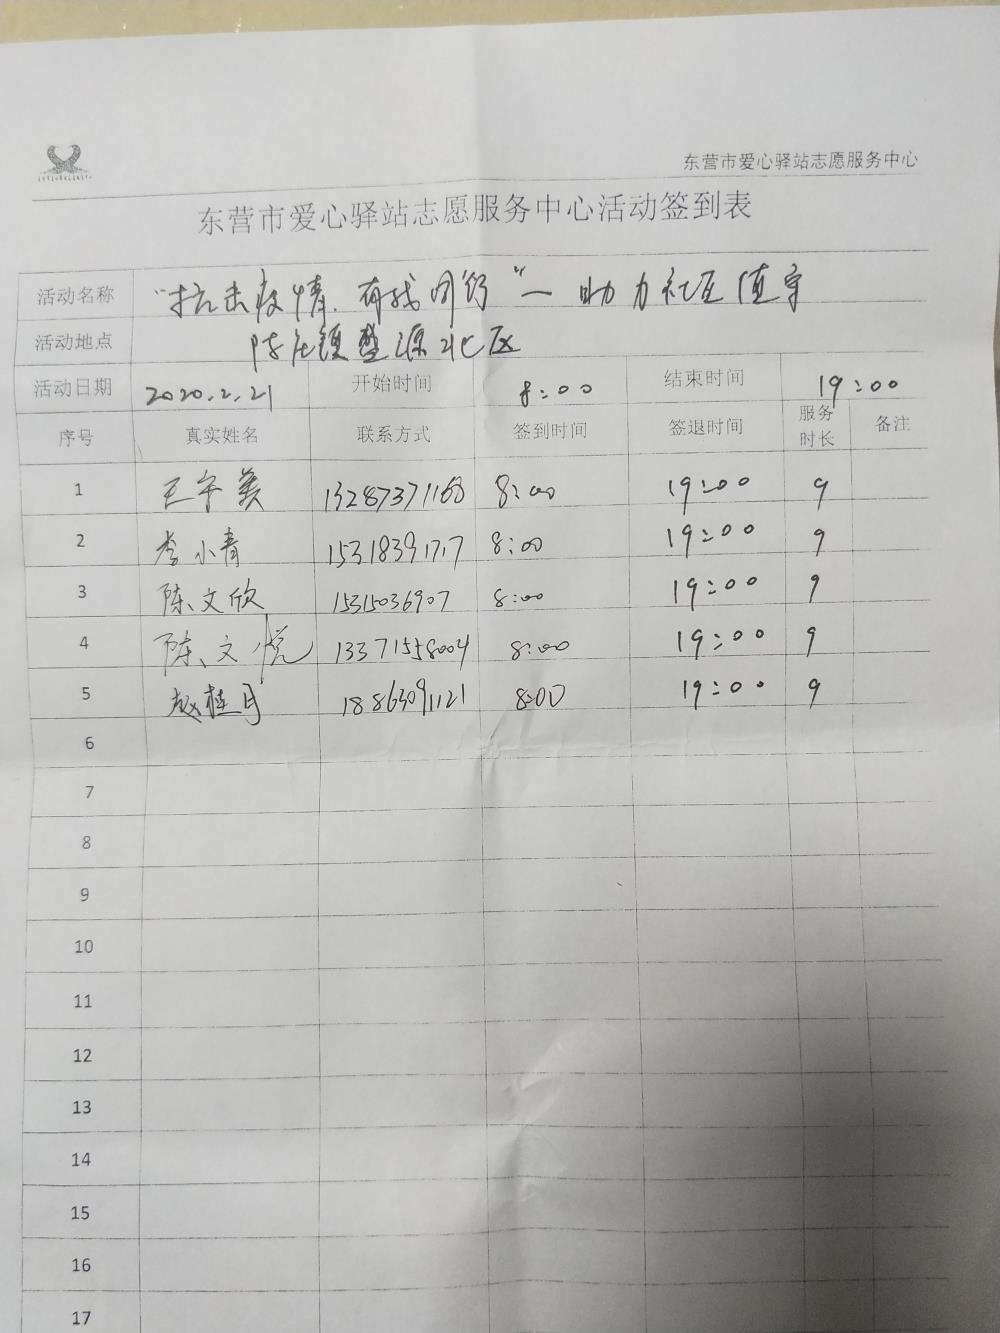 东营市爱心驿站志愿服务中心
东营市爱心驿站志愿服务中心活动签到表
活动名称 “抗击疫情、有我同行”一助力社区值守
活动地点 陈庄镇盛源北区
活动日期 2020.2.21 开始时间 8:00 结束时间 19:00
序号 真实姓名 联系方式 签到时间 签退时间 服务时长 备注
1 王 美 13287371168 8:00 19:00 9
2 李小青 15318391717 8:00 19:00 9
3 陈文欣 15315036907 8:00 19:00 9
4 陈文悦 13371558004 8:00 19:00 9
5 赵桂月 18863091121 8:00 19:00 9
6
7
8
9
10
11
12
13
14
15
16
17